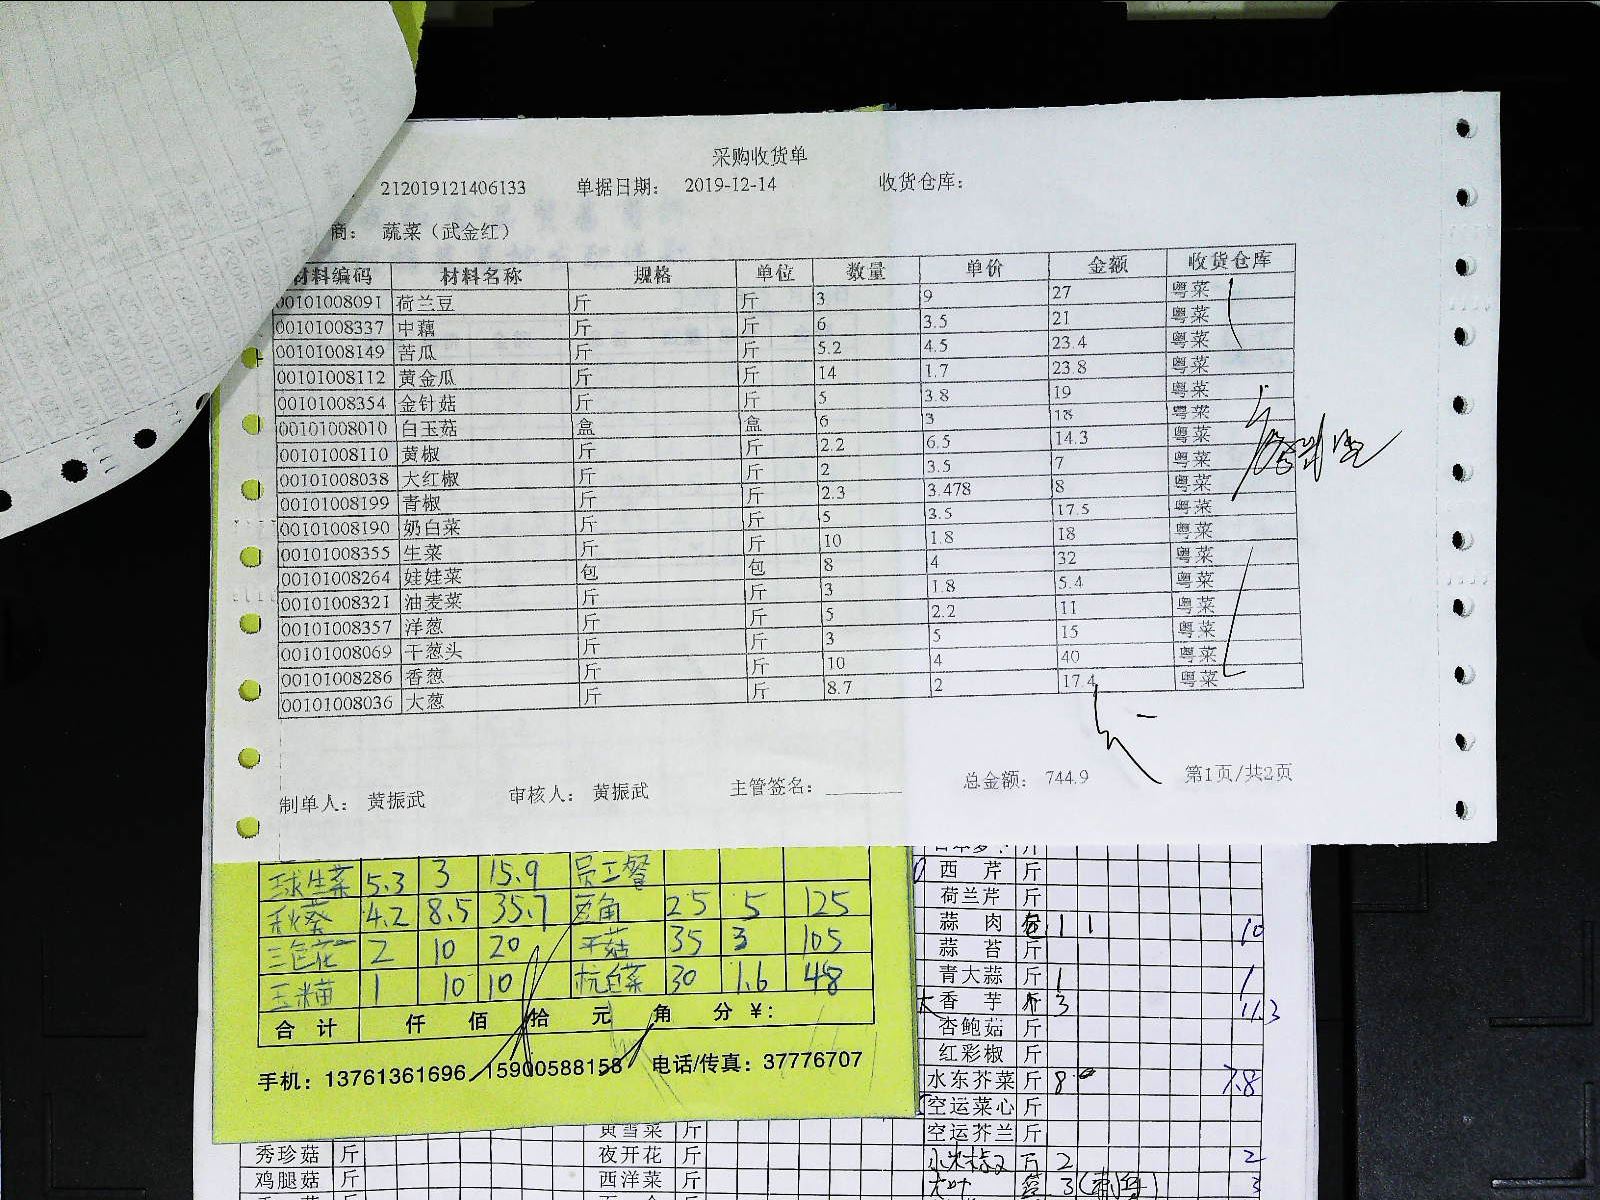 采购收货单
212019121406133 单据日期： 2019-12-14 收货仓库：
商： 蔬菜（武金红）
材料编码 材料名称 规格 单位 数量 单价 金额 收货仓库
00101008091 荷兰豆 斤 斤 3 9 27 粤菜
00101008337 中藕 斤 斤 6 3.5 21 粤菜
00101008149 苦瓜 斤 斤 5.2 4.5 23.4 粤菜
00101008112 黄金瓜 斤 斤 14 1.7 23.8 粤菜
00101008354 金针菇 斤 斤 5 3.8 19 粤菜
00101008010 白玉菇 盒 盒 6 3 18 粤菜
00101008110 黄椒 斤 斤 2.2 6.5 14.3 粤菜
00101008038 大红椒 斤 斤 2 3.5 7 粤菜
00101008199 青椒 斤 斤 2.3 3.478 8 粤菜
00101008190 奶白菜 斤 斤 5 3.5 17.5 粤菜
00101008355 生菜 斤 斤 10 1.8 18 粤菜
00101008264 娃娃菜 包 包 8 4 32 粤菜
00101008321 油麦菜 斤 斤 3 1.8 5.4 粤菜
00101008357 洋葱 斤 斤 5 2.2 11 粤菜
00101008069 干葱头 斤 斤 3 5 15 粤菜
00101008286 香葱 斤 斤 10 4 40 粤菜
00101008036 大葱 斤 斤 8.7 2 17.4 粤菜
制单人： 黄振武 审核人： 黄振武 主管签名： 总金额： 744.9 第1页/共2页
球生菜 5.3 3 15.9 员工餐
秋葵 4.2 8.5 35.7 豆角 25 5 125
三色花 2 10 20 平菇 35 3 105
玉米苗 1 10 10 杭白菜 30 1.6 48
合计 仟 佰 拾 元 角 分 ¥:
手机：13761361696 15900588158 电话/传真：37776707
西芹 斤
荷兰芹 斤
蒜肉 包 1 1 10
蒜苔 斤
青大蒜 斤 1 1
香芋 斤 3 11.3
杏鲍菇 斤
红彩椒 斤
水东芥菜 斤 8 7.8
空运菜心 斤
空运芥兰 斤
黄雪菜 斤
秀珍菇 斤 夜开花 斤 2 2
鸡腿菇 斤 西洋菜 斤 3 3